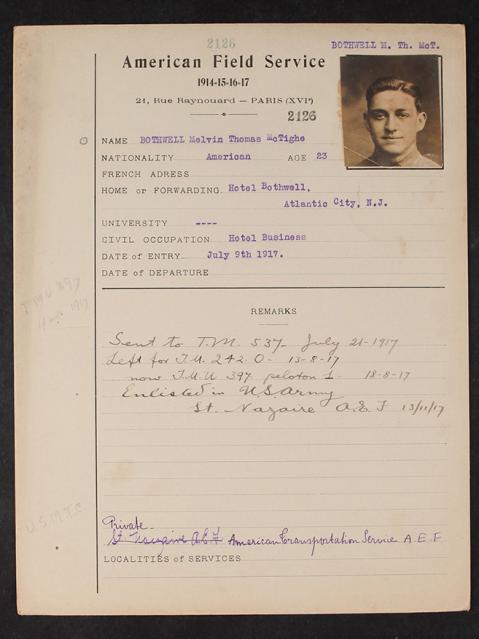 2126
BOTHWELL M. Th. McT.
American Field Service
1914-15-16-17
21, Rue Raynouard — PARIS (XVIe)
2126
NAME BOTHWELL Melvin Thomas McTighe
NATIONALITY American AGE 23
FRENCH ADRESS
HOME or FORWARDING Hotel Bothwell,
Atlantic City, N.J.
UNIVERSITY ----
CIVIL OCCUPATION Hotel Business
DATE of ENTRY July 9th 1917.
DATE of DEPARTURE
REMARKS
Sent to T.M. 537- July 21-1917
Left for T.U. 242.0- 13-8-17
now T.M.U 397 peloton 1- 18-8-17
Enlisted in U.S. Army
St. Nazaire A.E.F 13/11/17
T.M.U 397
1917
Private
St Nazaire A.E.F American Transportation Service A.E.F
LOCALITIES of SERVICES